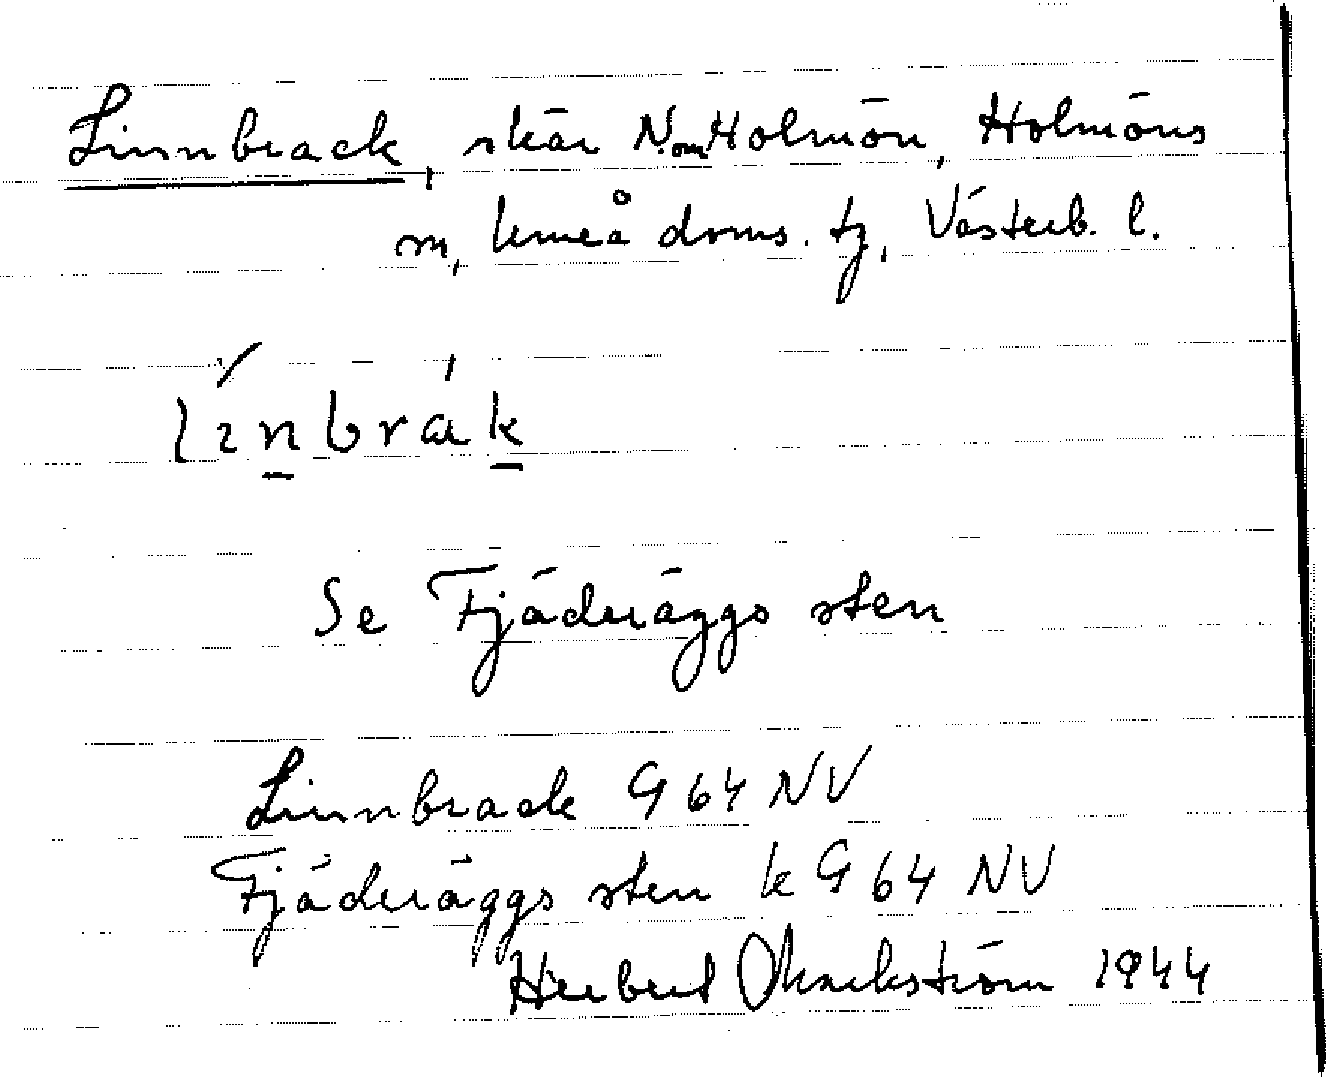 Linnbrack, skär N.om Holmön, Holmöns
m, Umeå doms. tj, Västerb. l.
lınbrak
Se Fjäderäggs sten
Linnbrack G 64 NV
Fjäderäggs sten k G 64 NV
Herbert Markström 1944